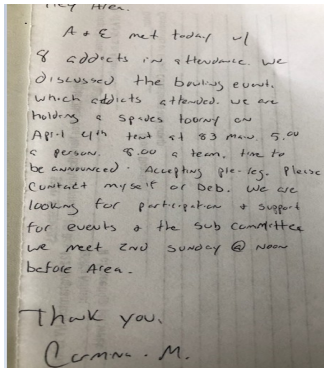 Hey Area.
A & E met today w/
8 addicts in attendance. We
discussed the bowling event.
which addicts attended. we are
holding a spades tourny on
April 4th tent at 83 Main. 5.00
a person. 8.00 a team. time to
be announced. Accepting pre-reg. Please
Contact myself or Deb. We are
looking for participation & support
for events & the sub committee
we meet 2nd Sunday @ Noon
before Area.
Thank you.
Carmina. M.